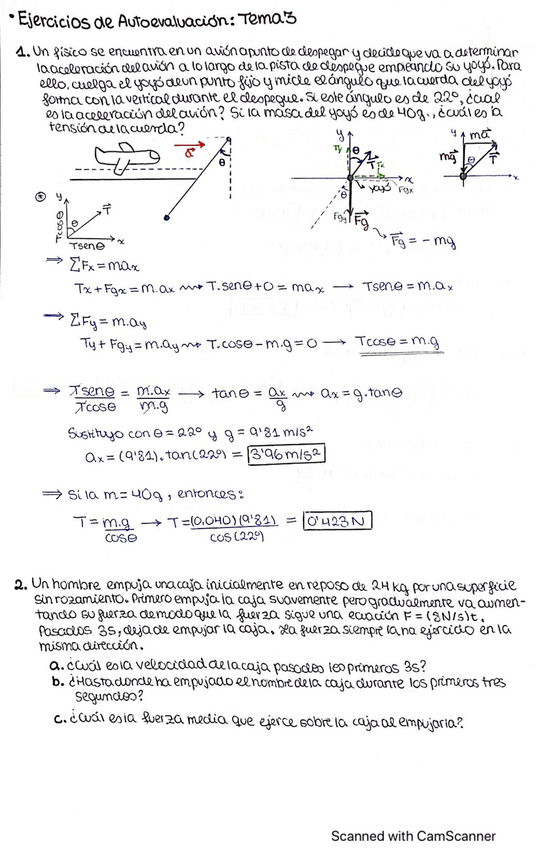 • Ejercicios de Autoevaluación: Tema 3
1. Un físico se encuentra en un avión apunto de despegar y decide que va a determinar
la aceleración del avión a lo largo de la pista de despegue empleando su yoyó. Para
ello, cuelga el yoyó de un punto fijo y mide el ángulo que la cuerda del yoyó
forma con la vertical durante el despegue. Si este ángulo es de 22º, ¿cuál
es la aceleración del avión? Si la masa del yoyó es de 40g., ¿cuál es la
tensión de la cuerda?
a θ
y Ty θ T Tx x θ yoyó Fgx Fgy Fg
Fg = - mg
y ma mg θ T x
y Tcosθ θ T Tsenθ x
⇒ ΣFx = max
Tx + Fgx = m.ax ⇝ T.senθ + 0 = max → Tsenθ = m.ax
⇒ ΣFy = m.ay
Ty + Fgy = m.ay ⇝ T.cosθ - m.g = 0 → Tcosθ = m.g
⇒ Tsenθ/Tcosθ = m.ax/m.g → tanθ = ax/g ⇝ ax = g.tanθ
Sustituyo con θ = 22º y g = 9'81 m/s²
ax = (9'81).tan(22º) = 3'96 m/s²
⇒ Si la m = 40g, entonces:
T = m.g/cosθ → T = (0.040)(9'81)/cos(22º) = 0'423 N
2. Un hombre empuja una caja inicialmente en reposo de 24 kg por una superficie
sin rozamiento. Primero empuja la caja suavemente pero gradualmente va aumen-
tando su fuerza de modo que la fuerza sigue una ecuación F = (8N/s)t.
Pasados 3s, deja de empujar la caja. La fuerza siempre la ha ejercido en la
misma dirección.
a. ¿Cuál es la velocidad de la caja pasados los primeros 3s?
b. ¿Hasta donde ha empujado el hombre de la caja durante los primeros tres
segundos?
c. ¿Cuál es la fuerza media que ejerce sobre la caja al empujarla?
Scanned with CamScanner